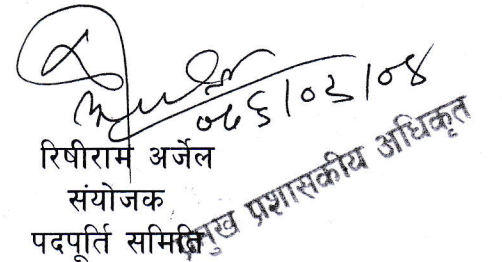 रिषीराम अर्जेल
संयोजक
पदपूर्ति समिति
प्रमुख प्रशासकीय अधिकृत